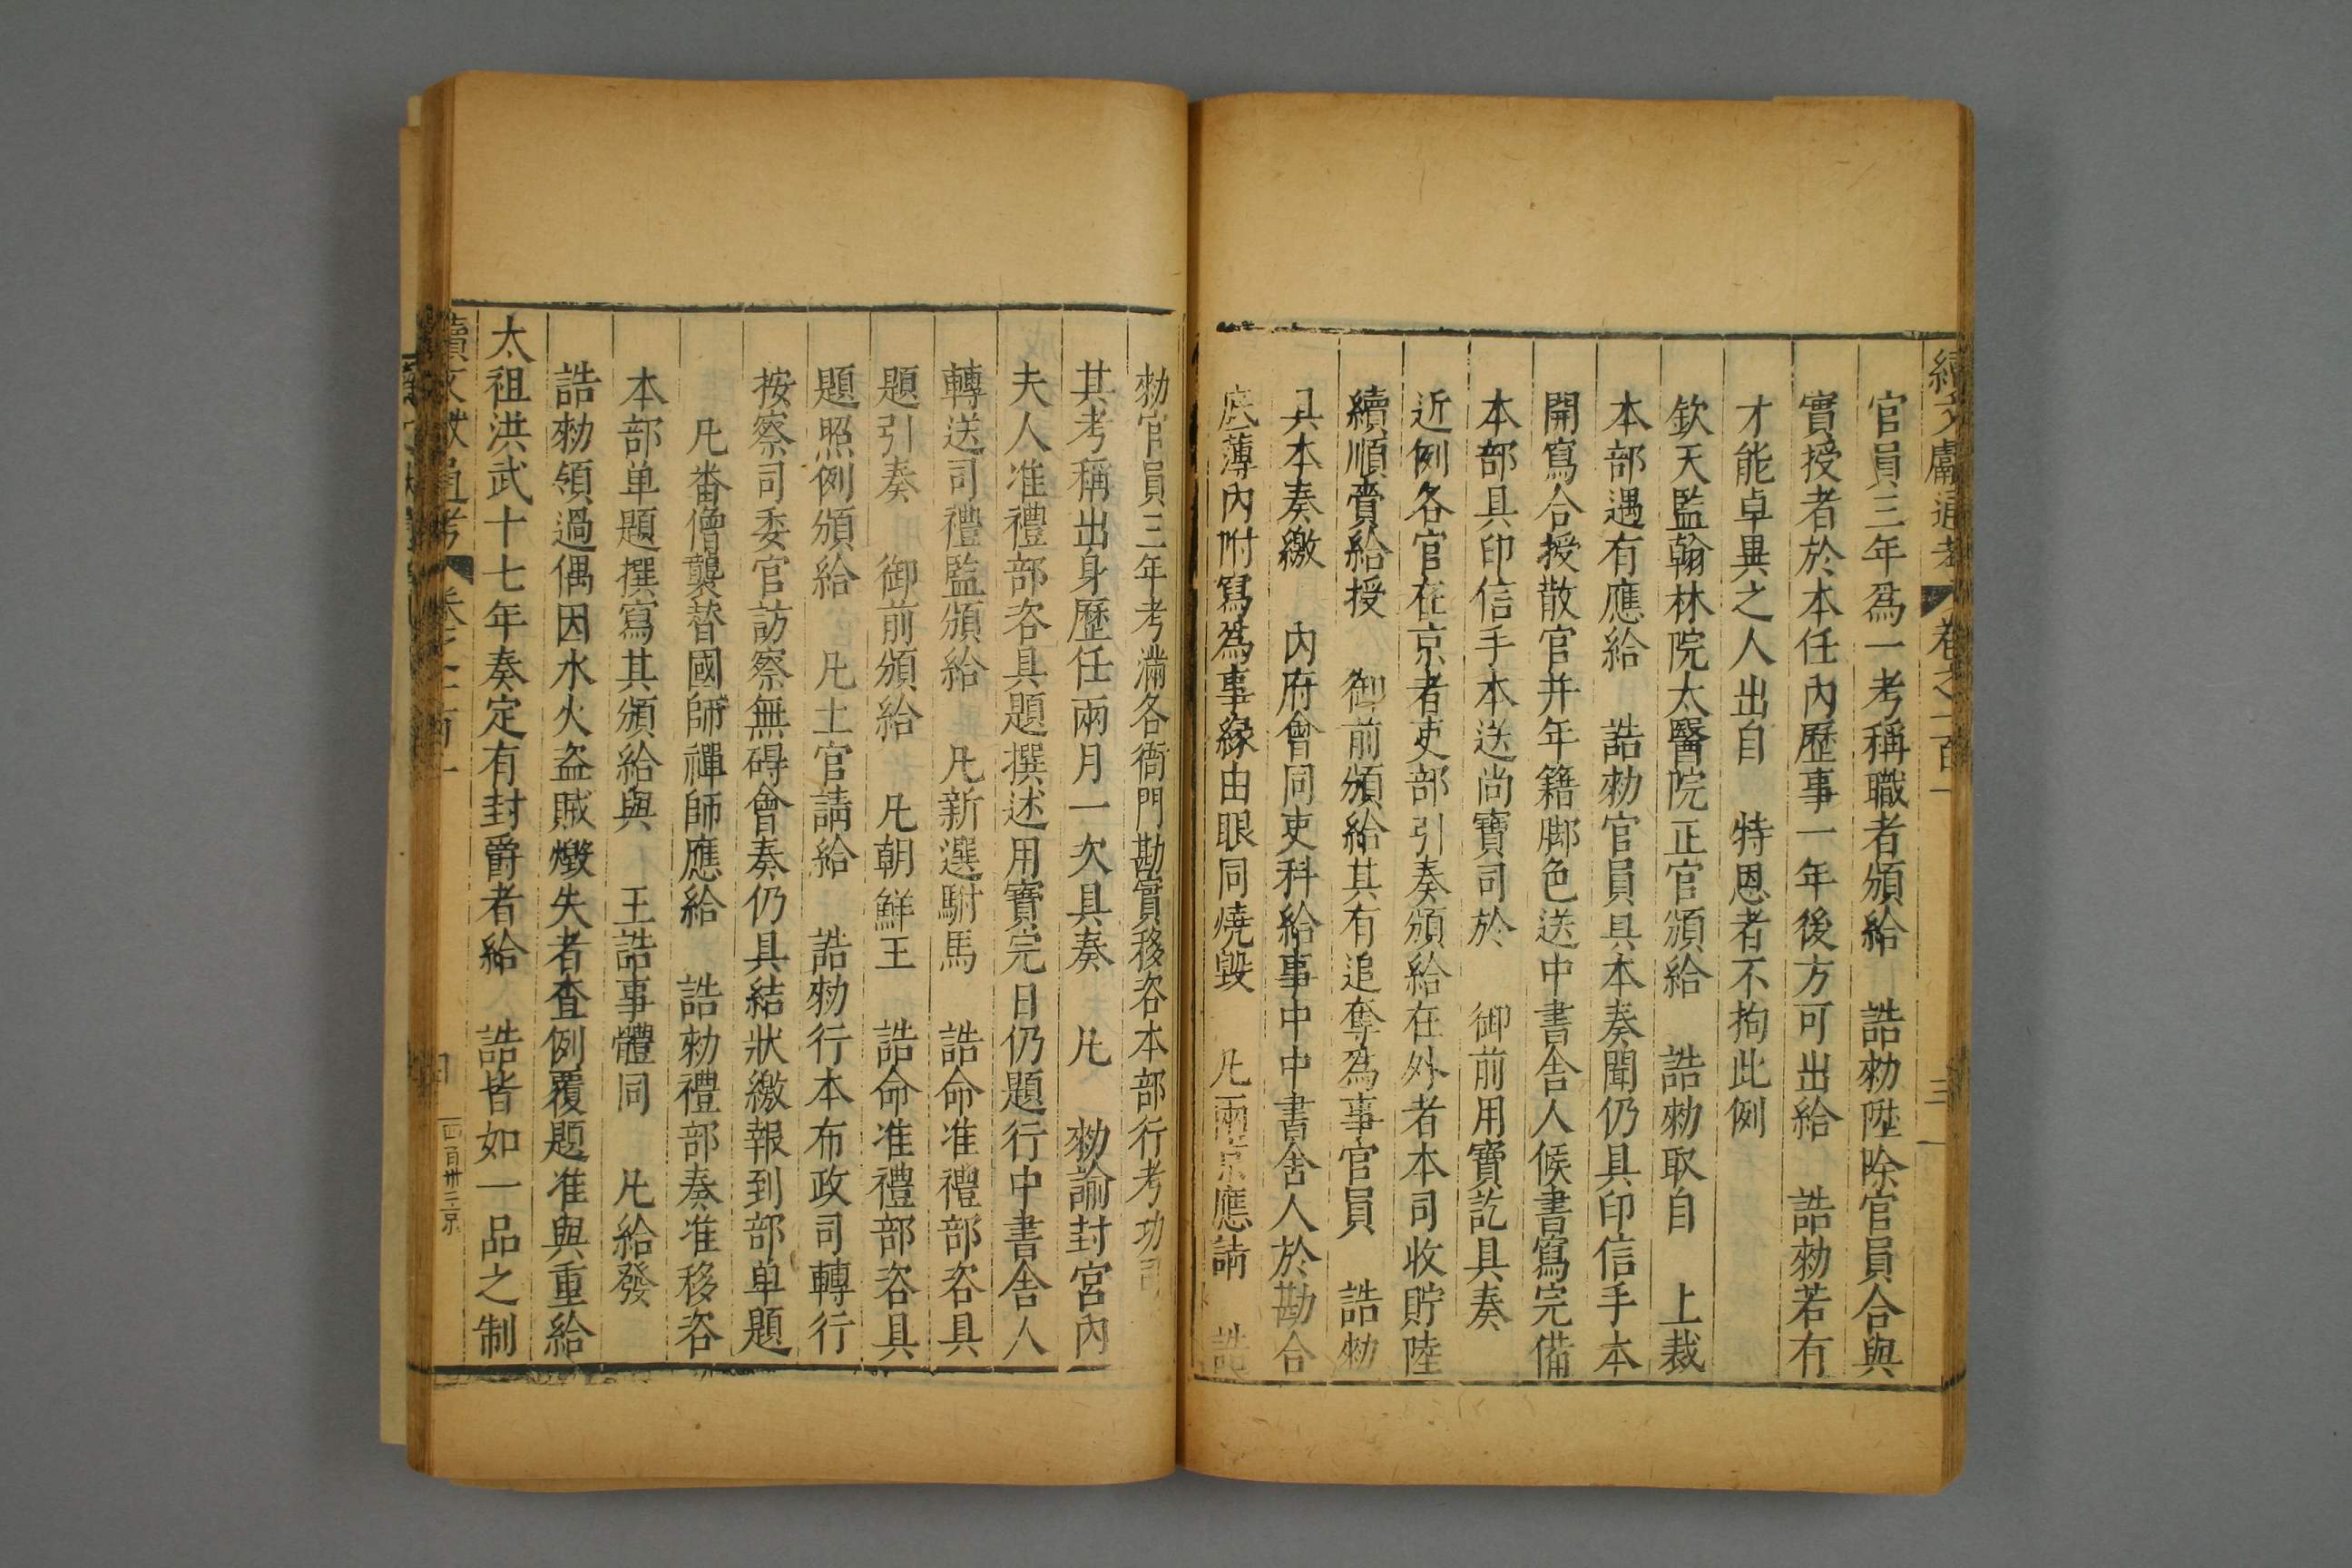 續文獻通考 卷之一百一 三
官員三年爲一考稱職者頒給 誥勑陞除官員合與
實授者於本任內歷事一年後方可出給 誥勑若有
才能卓異之人出自 特恩者不拘此例
欽天監翰林院太醫院正官頒給 誥勑取自 上裁
本部遇有應給 誥勑官員具本奏聞仍具印信手本
開寫合授散官并年籍脚色送中書舍人候書寫完備
本部具印信手本送尚寶司於 御前用寶訖具奏
近例各官在京者吏部引奏頒給在外者本司收貯陸
續順賫給授 御前頒給其有追奪為事官員 誥勑
具本奏繳 內府會同吏科給事中中書舍人於勘合
底薄內附寫為事緣由眼同燒毀 凡兩京應請 誥
勑官員三年考滿各衙門勘實移咨本部行考功司
其考稱出身歷任兩月一次具奏 凡 勑諭封宮內
夫人准禮部咨具題撰述用寶完日仍題行中書舍人
轉送司禮監頒給 凡新選駙馬 誥命准禮部咨具
題引奏 御前頒給 凡朝鮮王 誥命准禮部咨具
題照例頒給 凡土官請給 誥勑行本布政司轉行
按察司委官訪察無碍會奏仍具結狀繳報到部单題
凡番僧襲替國師禪師應給 誥勑禮部奏准移咨
本部单題撰寫其頒給與 王誥事體同 凡給發
誥勑領過偶因水火盗賊燬失者查例覆題准與重給
太祖洪武十七年奏定有封爵者給 誥皆如一品之制
續文獻通考 四百卅三京